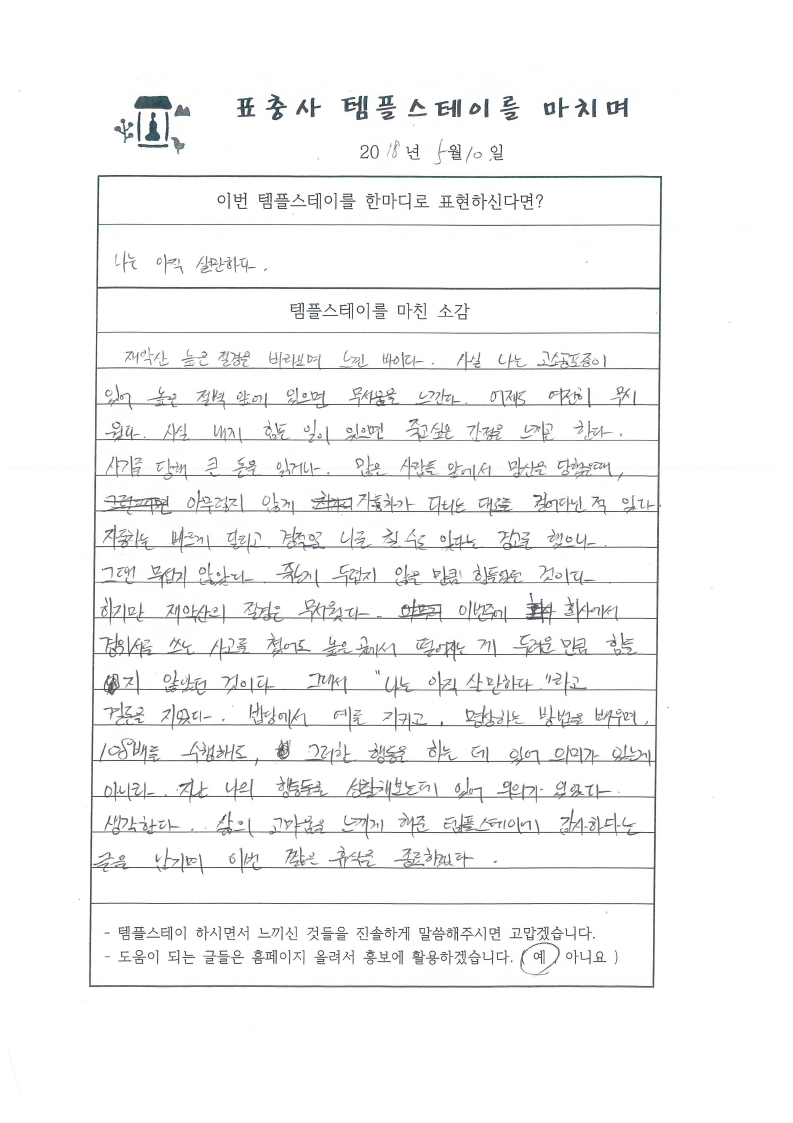 표충사 템플스테이를 마치며
2018년 5월 10일
이번 템플스테이를 한마디로 표현하신다면?
나는 아직 살만하다.
템플스테이를 마친 소감
재약산 높은 절경을 바라보며 느낀 바이다. 사실 나는 고소공포증이
있어 높은 절벽 앞에 있으면 무서움을 느낀다. 어제도 여전히 무서
웠다. 사실 내게 힘든 일이 있으면 죽고싶은 감정을 느끼곤 한다.
사기를 당해 큰 돈을 잃거나. 많은 사람들 앞에서 망신을 당했을때,
아무렇지 않게 자동차가 다니는 대로 걸어다닌 적 있다.
자동차는 빠르게 달리고, 경적으로 나를 칠 수도 있다는 경고를 했으나
그땐 무섭지 않았다. 죽는게 두렵지 않은 만큼 힘들었던 것이다.
하지만 재약산의 절경은 무서웠다. 이번주에 회사에서
경위서를 쓰는 사고를 쳤어도 높은 곳에서 떨어지는 게 두려운 만큼 힘들
지 않았던 것이다. 그래서 "나는 아직 살만하다."라고
결론을 지었다. 법당에서 예를 지키고, 명상하는 방법을 배우며,
108배를 수행해도, 그러한 행동을 하는 데 있어 의미가 있는게
아니라. 지난 나의 행동들을 성찰해보는데 있어 의의가 있었다
생각한다. 삶의 고마움을 느끼게 해준 템플스테이에 감사하다는
글을 남기며 이번 짧은 휴식을 종료하겠다.
- 템플스테이 하시면서 느끼신 것들을 진솔하게 말씀해주시면 고맙겠습니다.
- 도움이 되는 글들은 홈페이지 올려서 홍보에 활용하겠습니다. (예, 아니요 )